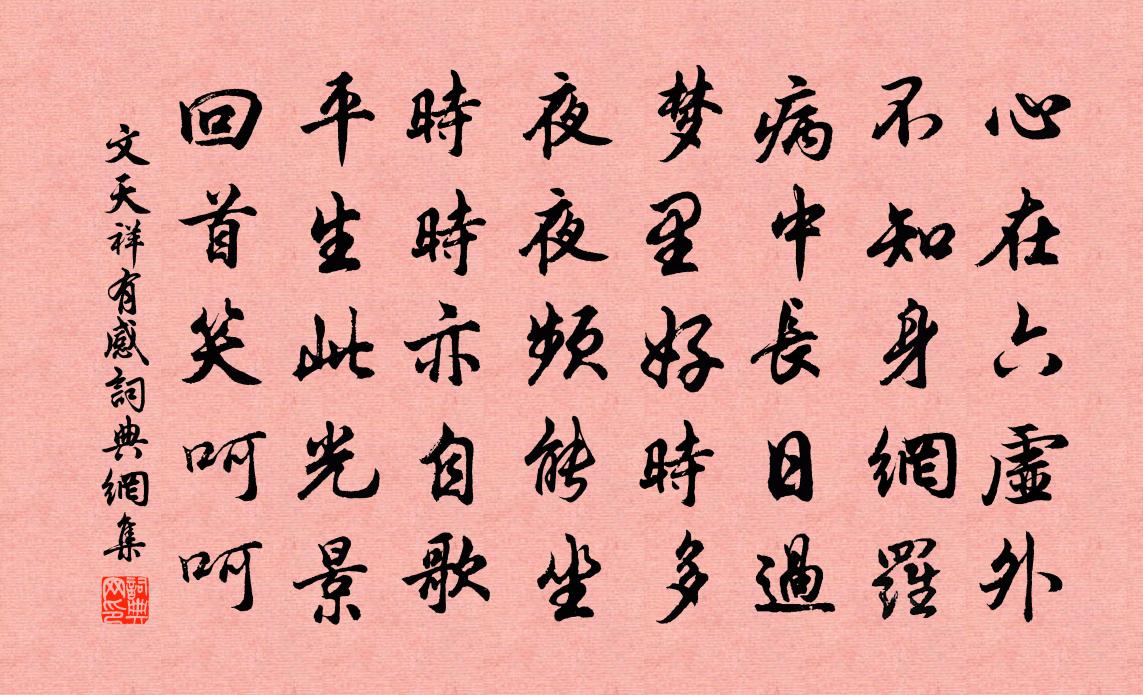 心在六虛外
不知身網羅
病中長日過
梦里好時多
夜夜频能坐
時時亦自歌
平生此光景
回首笑呵呵
文天祥有感詞典網集
詞典網印